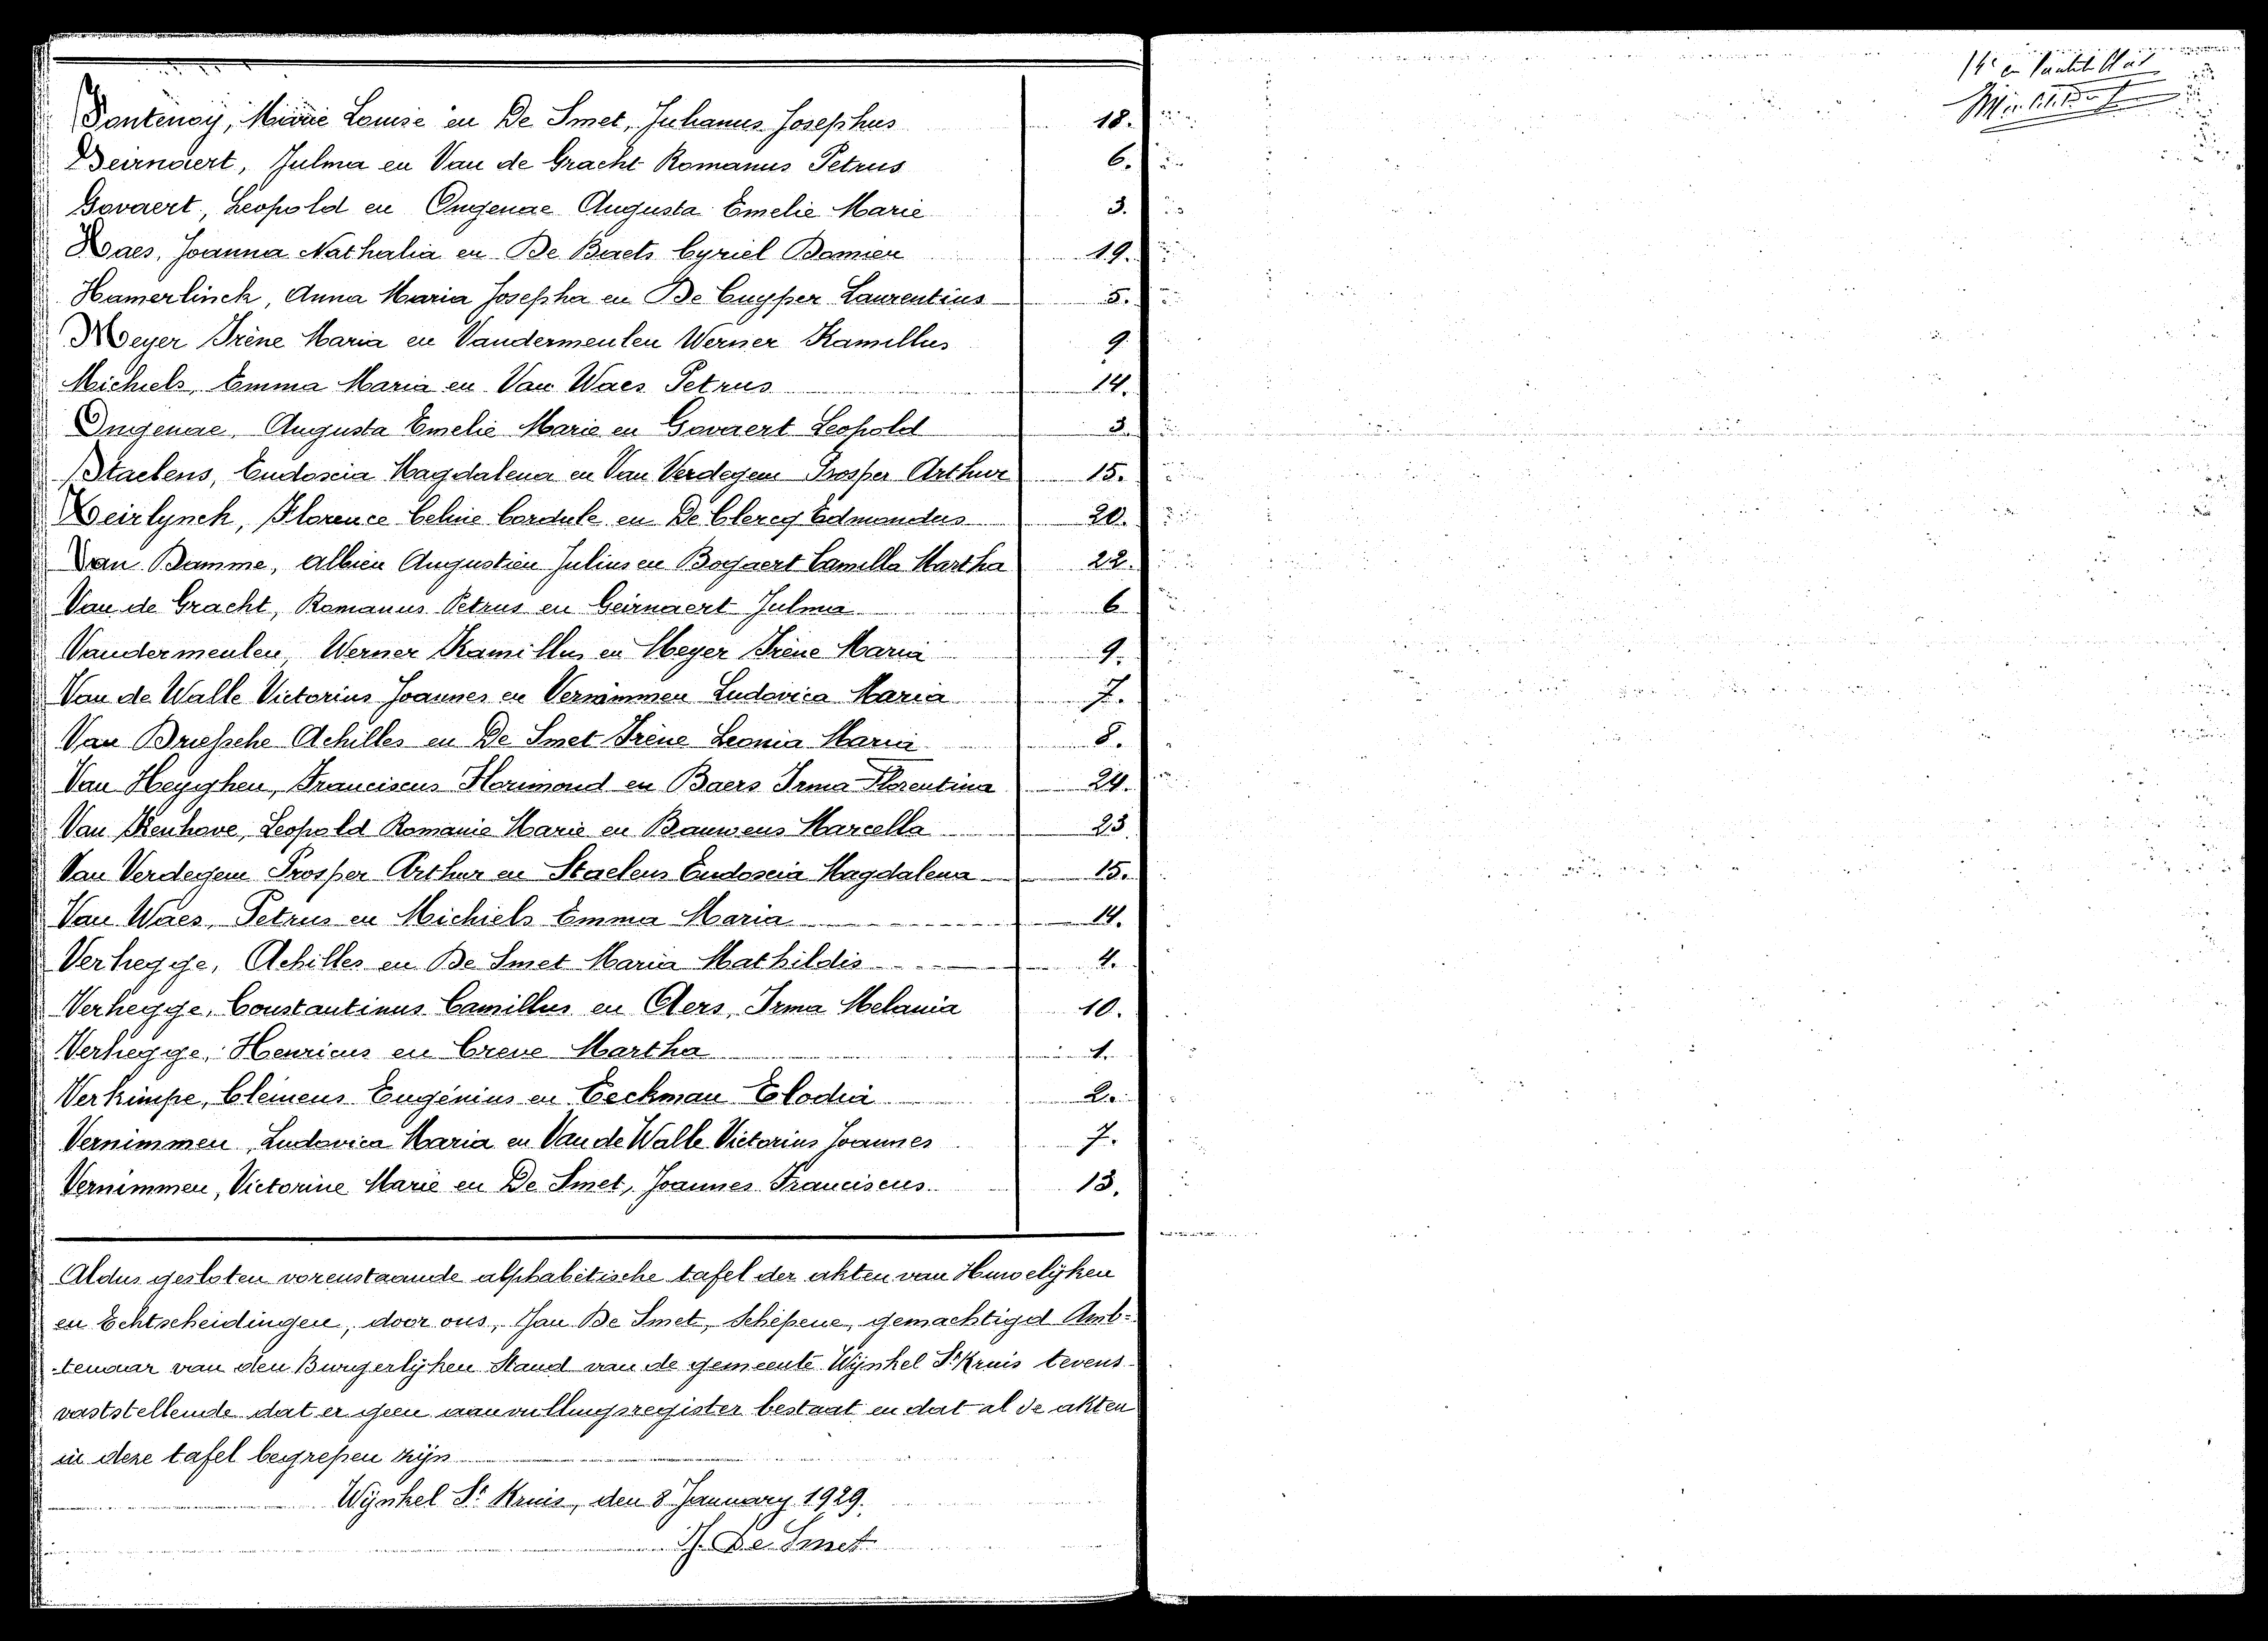 Fontenoy, Marie Louise en De Smet, Julianus Josephus 18.
Geirnaert, Julma en Van de Gracht Romanus Petrus 6.
Govaert, Leopold en Ongenae Augusta Emelie Marie 3.
Haes, Joanna Nathalia en De Baets Cyriel Damien 19.
Hamerlinck, Anna Maria Josepha en De Cuyper Laurentius 5.
Meyer Irène Maria en Vandermeulen Werner Kamillus 9
Michiels, Emma Maria en Van Waes Petrus 14.
Ongenae, Augusta Emelie Marie en Govaert Leopold 3.
Staelens, Eudoscia Magdalena en Van Verdegem Prosper Arthur 15.
Teirlynck, Florence Celine Cordule en De Clercq Edmondus 20.
Van Damme, Albien Augustien Julius en Bogaert Camilla Martha 22.
Van de Gracht, Romanus Petrus en Geirnaert Julma 6
Vandermeulen, Werner Kamillus en Meyer Irène Maria 9.
Van de Walle Victorius Joannes en Vernimmen Ludovica Maria 7.
Van Driessche Achilles en De Smet Irène Leonia Maria 8.
Van Heyghen, Franciscus Florimond en Baers Irma Florentina 24.
Van Renhove, Leopold Romanie Marie en Bauwens Marcella 23.
Van Verdegem Prosper Arthur en Staelens Eudoscia Magdalena 15.
Van Waes, Petrus en Michiels Emma Maria 14.
Verhegge, Achilles en De Smet Maria Mathildis 4.
Verhegge, Constantinus Camillus en Aers, Irma Melania 10.
Verhegge, Henricus en Creve Martha 1.
Verkimpe, Clemens Eugenius en Eeckman Elodia 2.
Vernimmen, Ludovica Maria en Van de Walle Victorius Joannes 7.
Vernimmen, Victorine Marie en De Smet, Joannes Franciscus 13.
Aldus gesloten vorenstaande alphabetische tafel der akten van Huwelijken
en Echtscheidingen, door ons, Jan De Smet, Schepene, gemachtigd Amb-
tenaar van den Burgerlijken Stand van de gemeente Wynkel St Kruis tevens
vaststellende dat er geen aanvullingsregister bestaat en dat al de akten
in deze tafel begrepen zijn
Wynkel St Kruis, den 8 January 1929.
J. De Smet